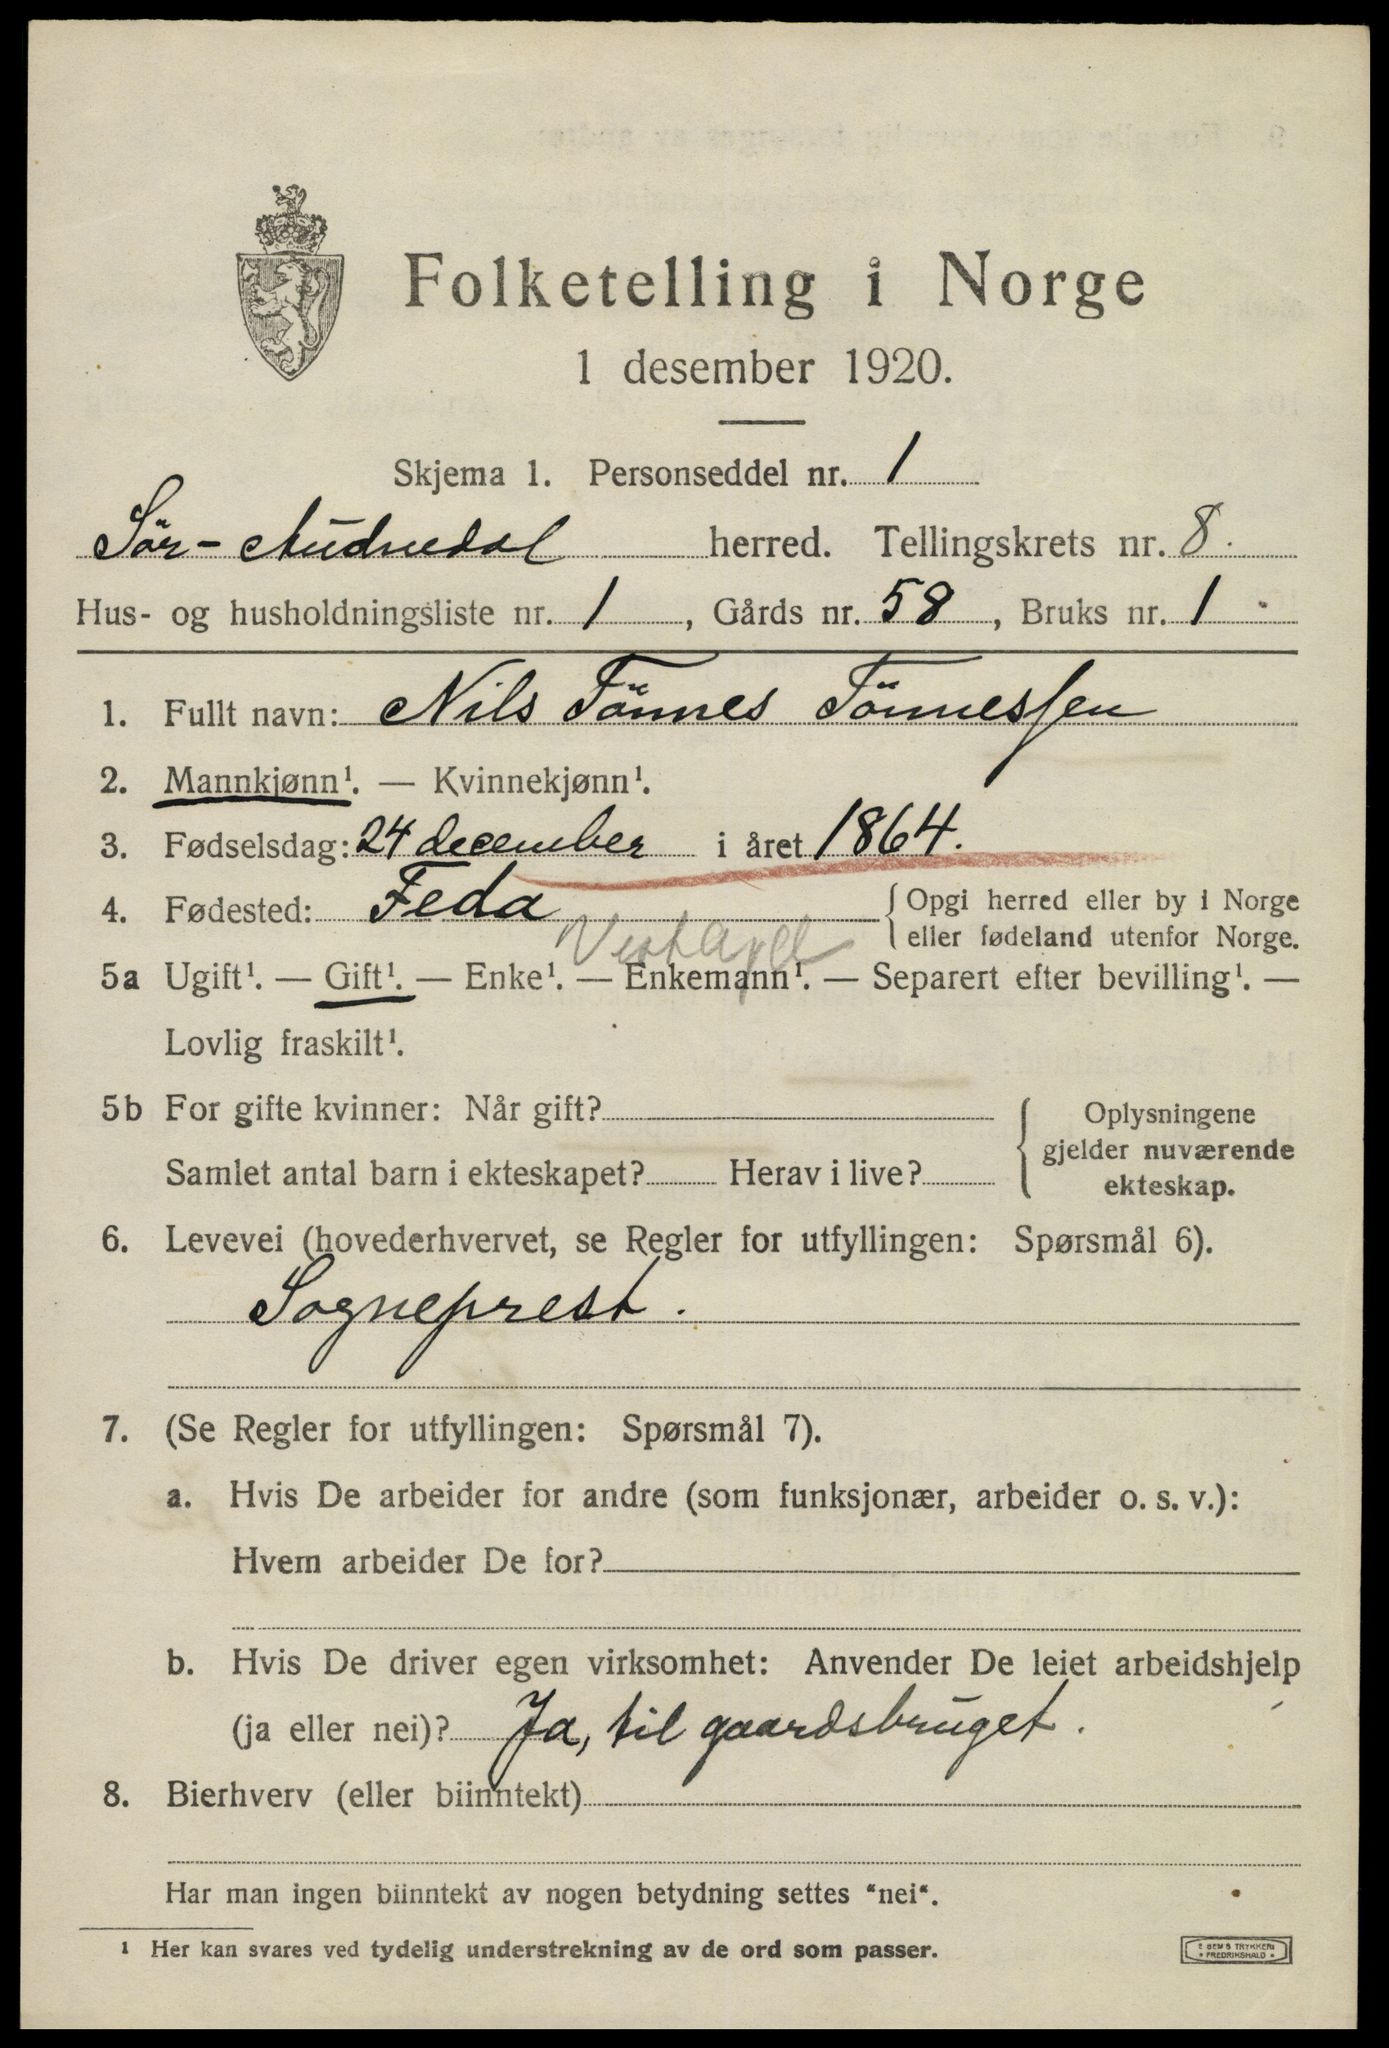 Folketelling i Norge
1 desember 1920.
Skjema 1. Personseddel nr. 1
Sör-Audnedal herred. Tellingskrets nr. 8.
Hus- og husholdningsliste nr. 1, Gårds nr. 58, Bruks nr. 1
1. Fullt navn: Nils Tönnes Tönnessen
2. Mannkjønn¹. — Kvinnekjønn¹.
3. Fødselsdag: 24 december i året 1864.
4. Fødested: Feda { Opgi herred eller by i Norge
eller fødeland utenfor Norge.
Vest Agd
5a Ugift¹. — Gift¹. — Enke¹. — Enkemann¹. — Separert efter bevilling¹. —
Lovlig fraskilt¹.
5b For gifte kvinner: Når gift?
Samlet antal barn i ekteskapet? Herav i live?
{ Oplysningene
gjelder nuværende
ekteskap.
6. Levevei (hovederhvervet, se Regler for utfyllingen: Spørsmål 6).
Sogneprest.
7. (Se Regler for utfyllingen: Spørsmål 7).
a. Hvis De arbeider for andre (som funksjonær, arbeider o. s. v.):
Hvem arbeider De for?
b. Hvis De driver egen virksomhet: Anvender De leiet arbeidshjelp
(ja eller nei)? Ja, til gaardsbruget.
8. Bierhverv (eller biinntekt)
Har man ingen biinntekt av nogen betydning settes "nei".
¹ Her kan svares ved tydelig understrekning av de ord som passer.
TRYKKERI
FREDRIKSHALD